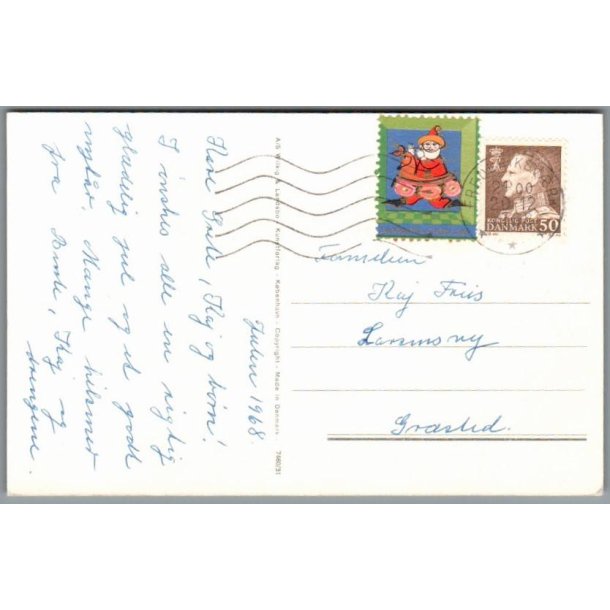 Julen 1968.
Kære Grete, Kaj og børn!
I ønskes alle en rigtig
glædelig jul og et godt
nytår. Mange hilsner
fra Bente, Kaj og
drengene.
A/S Vilh. Søborg Larsen
Kunstforlag - København - Copyright - Made in Denmark.
7680/31
00
12
KONGELIG POST
DANMARK 50
Familien
Kaj Friis
Græsted.